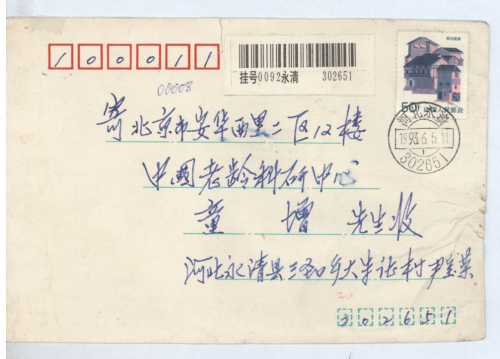 100011
挂号0092永清 302651
50
中国人民邮政
河北永清
1993.6.5.11
1
302651
00008
寄北京市安华西里二区12楼
中国老龄科研中心
童增 先生收
河北永清县三圣口乡大朱庄村尹宝荣
302651